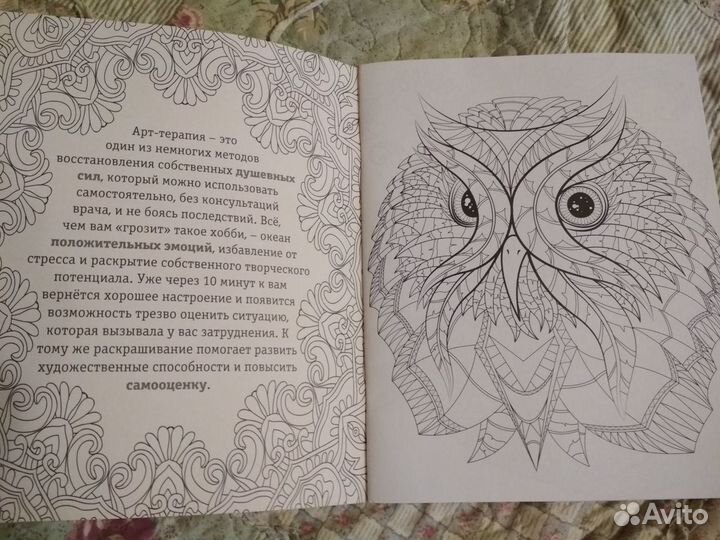 Арт-терапия – это
один из немногих методов
восстановления собственных душевных
сил, который можно использовать
самостоятельно, без консультаций
врача, и не боясь последствий. Всё,
чем вам «грозит» такое хобби, – океан
положительных эмоций, избавление от
стресса и раскрытие собственного творческого
потенциала. Уже через 10 минут к вам
вернётся хорошее настроение и появится
возможность трезво оценить ситуацию,
которая вызывала у вас затруднения. К
тому же раскрашивание помогает развить
художественные способности и повысить
самооценку.
Avito